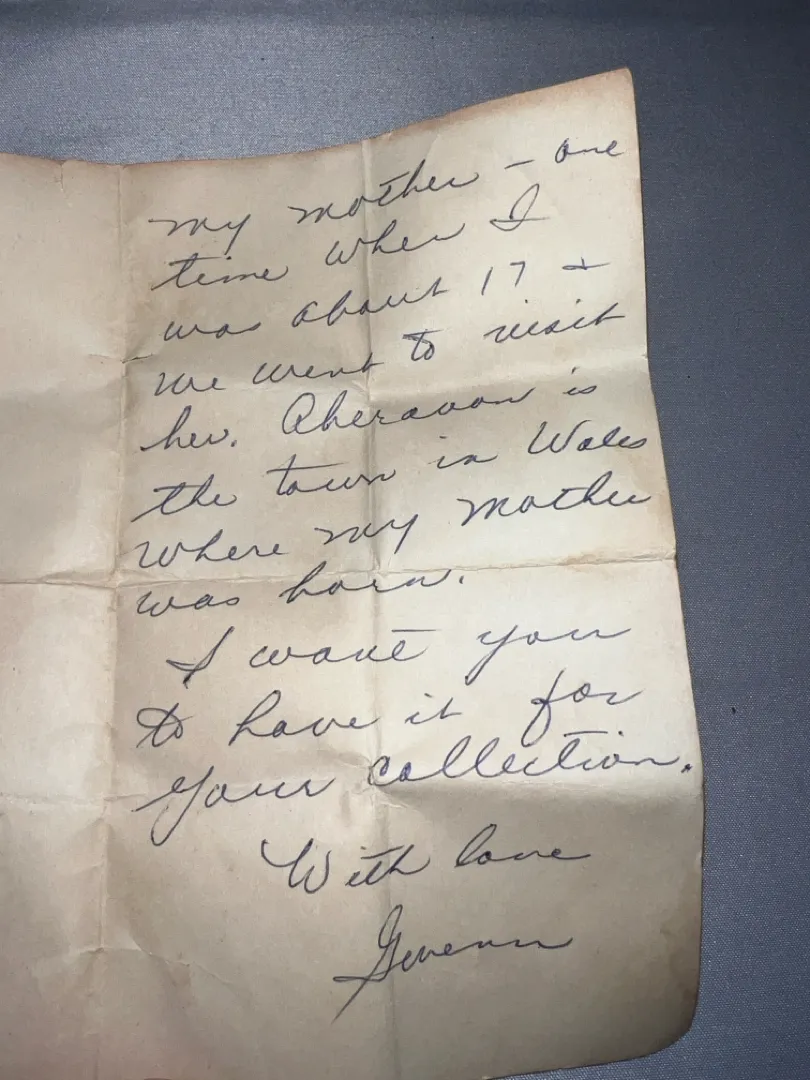 my mother – one
time when I
was about 17 &
we went to visit
her. Aberavon is
the town in Wales
where my mother
was born.
I want you
to have it for
your collection.
With love
Gwenn